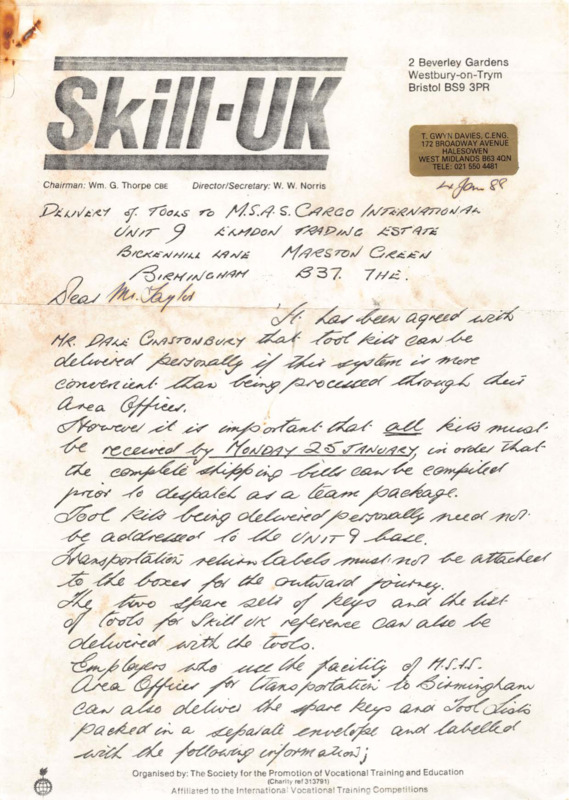 Skill-UK
2 Beverley Gardens
Westbury-on-Trym
Bristol BS9 3PR
T. GWYN DAVIES, C.ENG.
172 BROADWAY AVENUE
HALESOWEN
WEST MIDLANDS B63 4QN
TELE: 021 550 4481
Chairman: Wm. G. Thorpe CBE Director/Secretary: W. W. Norris
4 Jan 88
DELIVERY of TOOLS TO M.S.A.S. CARGO INTERNATIONAL
UNIT 9 ELMDON TRADING ESTATE
BICKENHILL LANE MARSTON GREEN
BIRMINGHAM B37 7HE.
Dear Mr. Taylor
It has been agreed with
MR. DALE GLASTONBURY that tool kits can be
delivered personally if this system is more
convenient than being processed through their
Area Offices.
However it is important that all kits must
be received by MONDAY 25 JANUARY, in order that
the complete shipping bills can be compiled
prior to despatch as a team package.
Tool kits being delivered personally need not
be addressed to the UNIT 9 base.
Transportation return labels must not be attached
to the boxes for the outward journey.
The two spare sets of keys and the list
of tools for Skill UK reference can also be
delivered with the tools.
Employers who use the facility of M.S.A.S.
Area Offices for transportation to Birmingham
can also deliver the spare keys and Tool Lists
packed in a separate envelope and labelled
with the following information;
Organised by: The Society for the Promotion of Vocational Training and Education
(Charity ref 313791)
Affiliated to the International Vocational Training Competitions